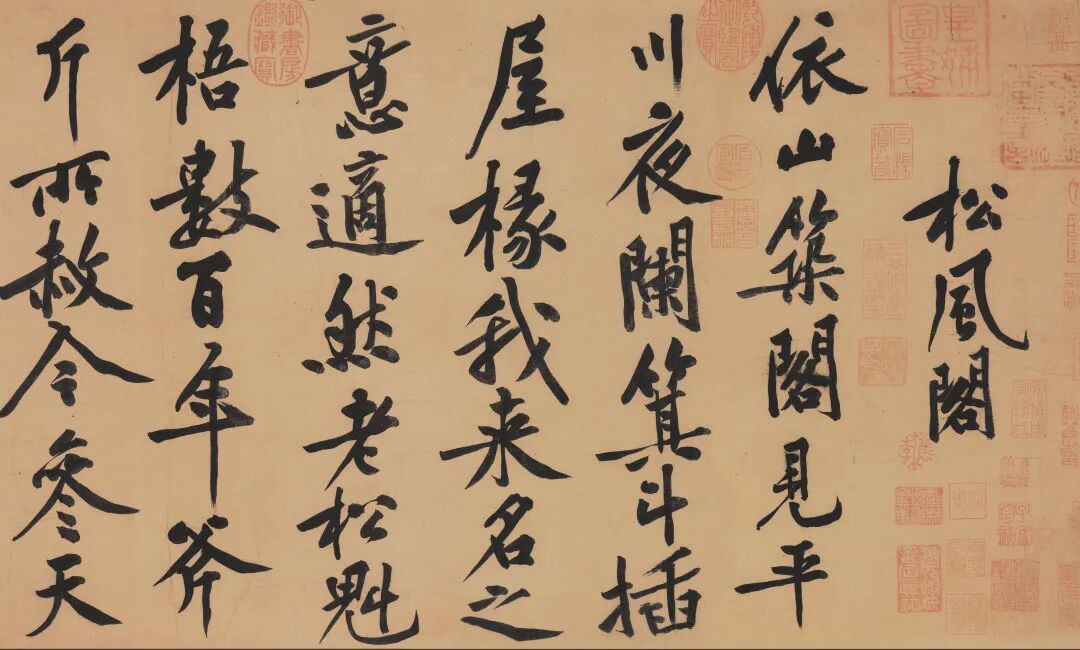 松風閣
依山築閣見平
川夜闌箕斗插
屋椽我来名之
意適然老松魁
梧數百年斧
斤所赦令參天
御書房鑑藏寶